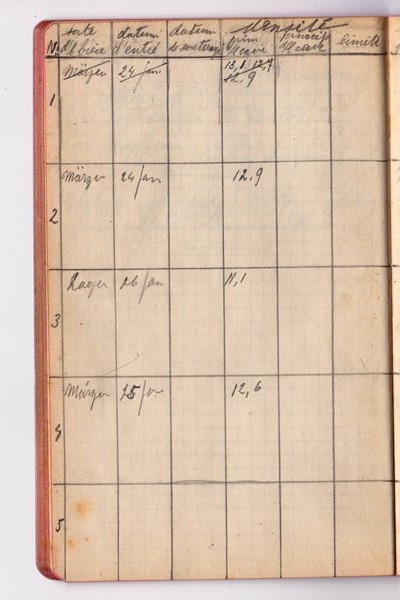 densité
N. sorte datum datum prim princip limite
d bière d'entré
1 Märzen 24 jan 13,1 12,7
12,9
2 Märzen 24 jan 12,9
3 Lager 26 jan 11,1
4 Märzen 25 jan 12,6
5